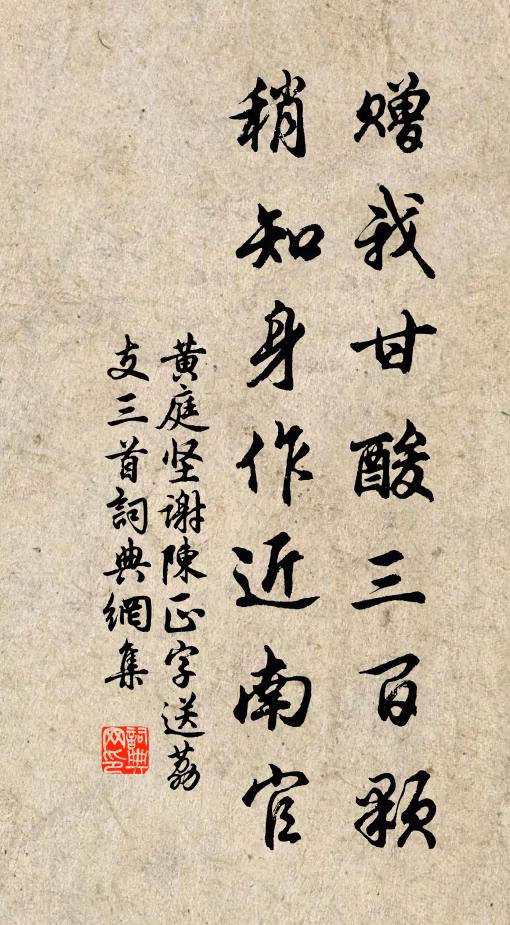 赠我甘酸三百颗
稍知身作近南官
黄庭坚谢陳正字送荔
支三首詞典網集
詞典
网印